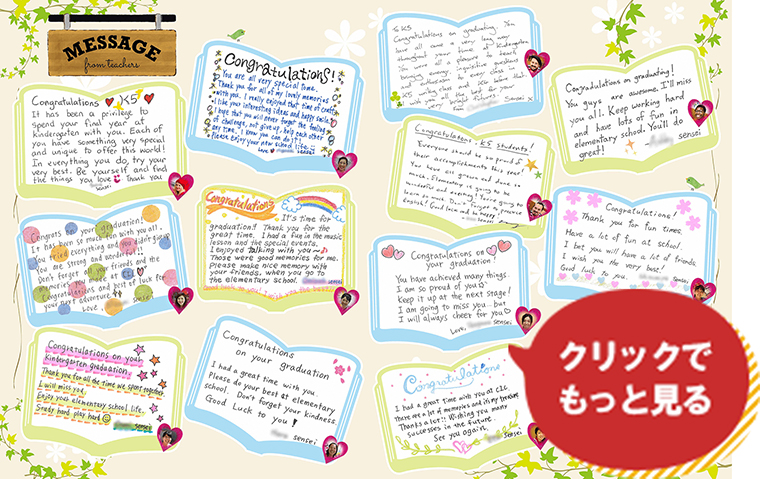 MESSAGE
from teachers
Congratulations K5
It has been a privilege to
spend your final year of
kindergarten with you. Each of
you have something very special
and unique to offer this world!
In everything you do, try your
very best. Be yourself and find
the things you love Thank you
sensei
Congratulations!
You are all very special to me.
Thank you for all of my lovely memories
with you. I really enjoyed that time of create.
I like your interesting ideas and happy smile.
I hope that you will never forget the feeling
of challenge, not give up, help each other
any time. I know you can do it!
Please enjoy your new school life.
Love sensei
K5
Congratulations on graduating. You
have all come a very long way
throughout your time at Kindergarten
You were all a pleasure to teach
bringing energy, inquisitive questions
and enthusiasm to every class
with very bright future.
sensei
Congratulations on graduating!
You guys are awesome. I'll miss
you all. Keep working hard
and have lots of fun in
elementary school. You'll do
great!
sensei
Congratulations K5 students!
Everyone should be so proud of
their accomplishments this year.
You have all grown and done so
much. Elementary is going to be
wonderful and exciting! You're going to
learn so much. Don't forget your
English! Good luck and be happy
Congrats on your graduation!
It has been so much fun with you all.
You tried everything and you didn't give up.
You are strong and wonderful!
Don't forget your friends and the
memories you made at CLC.
Congratulations and best of luck for
your next adventure
Love, sensei
Congratulations
It's time for
graduation!! Thank you for the
great time. I had a fun in the music
lesson and the special events.
I enjoyed talking with you~♪
Those were good memories for me.
Please make nice memory with
your friends, when you go to
the elementary school.
Good luck to you! I wish you the best!!
Congratulations on
your graduation!
You have achieved many things.
I am so proud of you☆
Keep it up at the next stage!
I am going to miss you but
I will always cheer for you♡
Love, sensei
Congratulations!
Thank you for fun times.
Have a lot of fun at school.
I bet you will have a lot of friends.
I wish you the very best.
Good luck to you. sensei
Congratulations on your
kindergarten graduation!
Thank you for all the time we spent together.
I will miss you.
Enjoy your elementary school life.
Study hard play hard☺
sensei
Congratulations
on your graduation
I had a great time with you.
Please do your best at elementary
school. Don't forget your kindness.
Good Luck to you!
sensei
Congratulations
I had a great time with you at CLC.
There are lot of memories and it's my treasure
Thanks a lot!! Wishing you many
successes in the future.
See you again.
sensei
クリックで
もっと見る